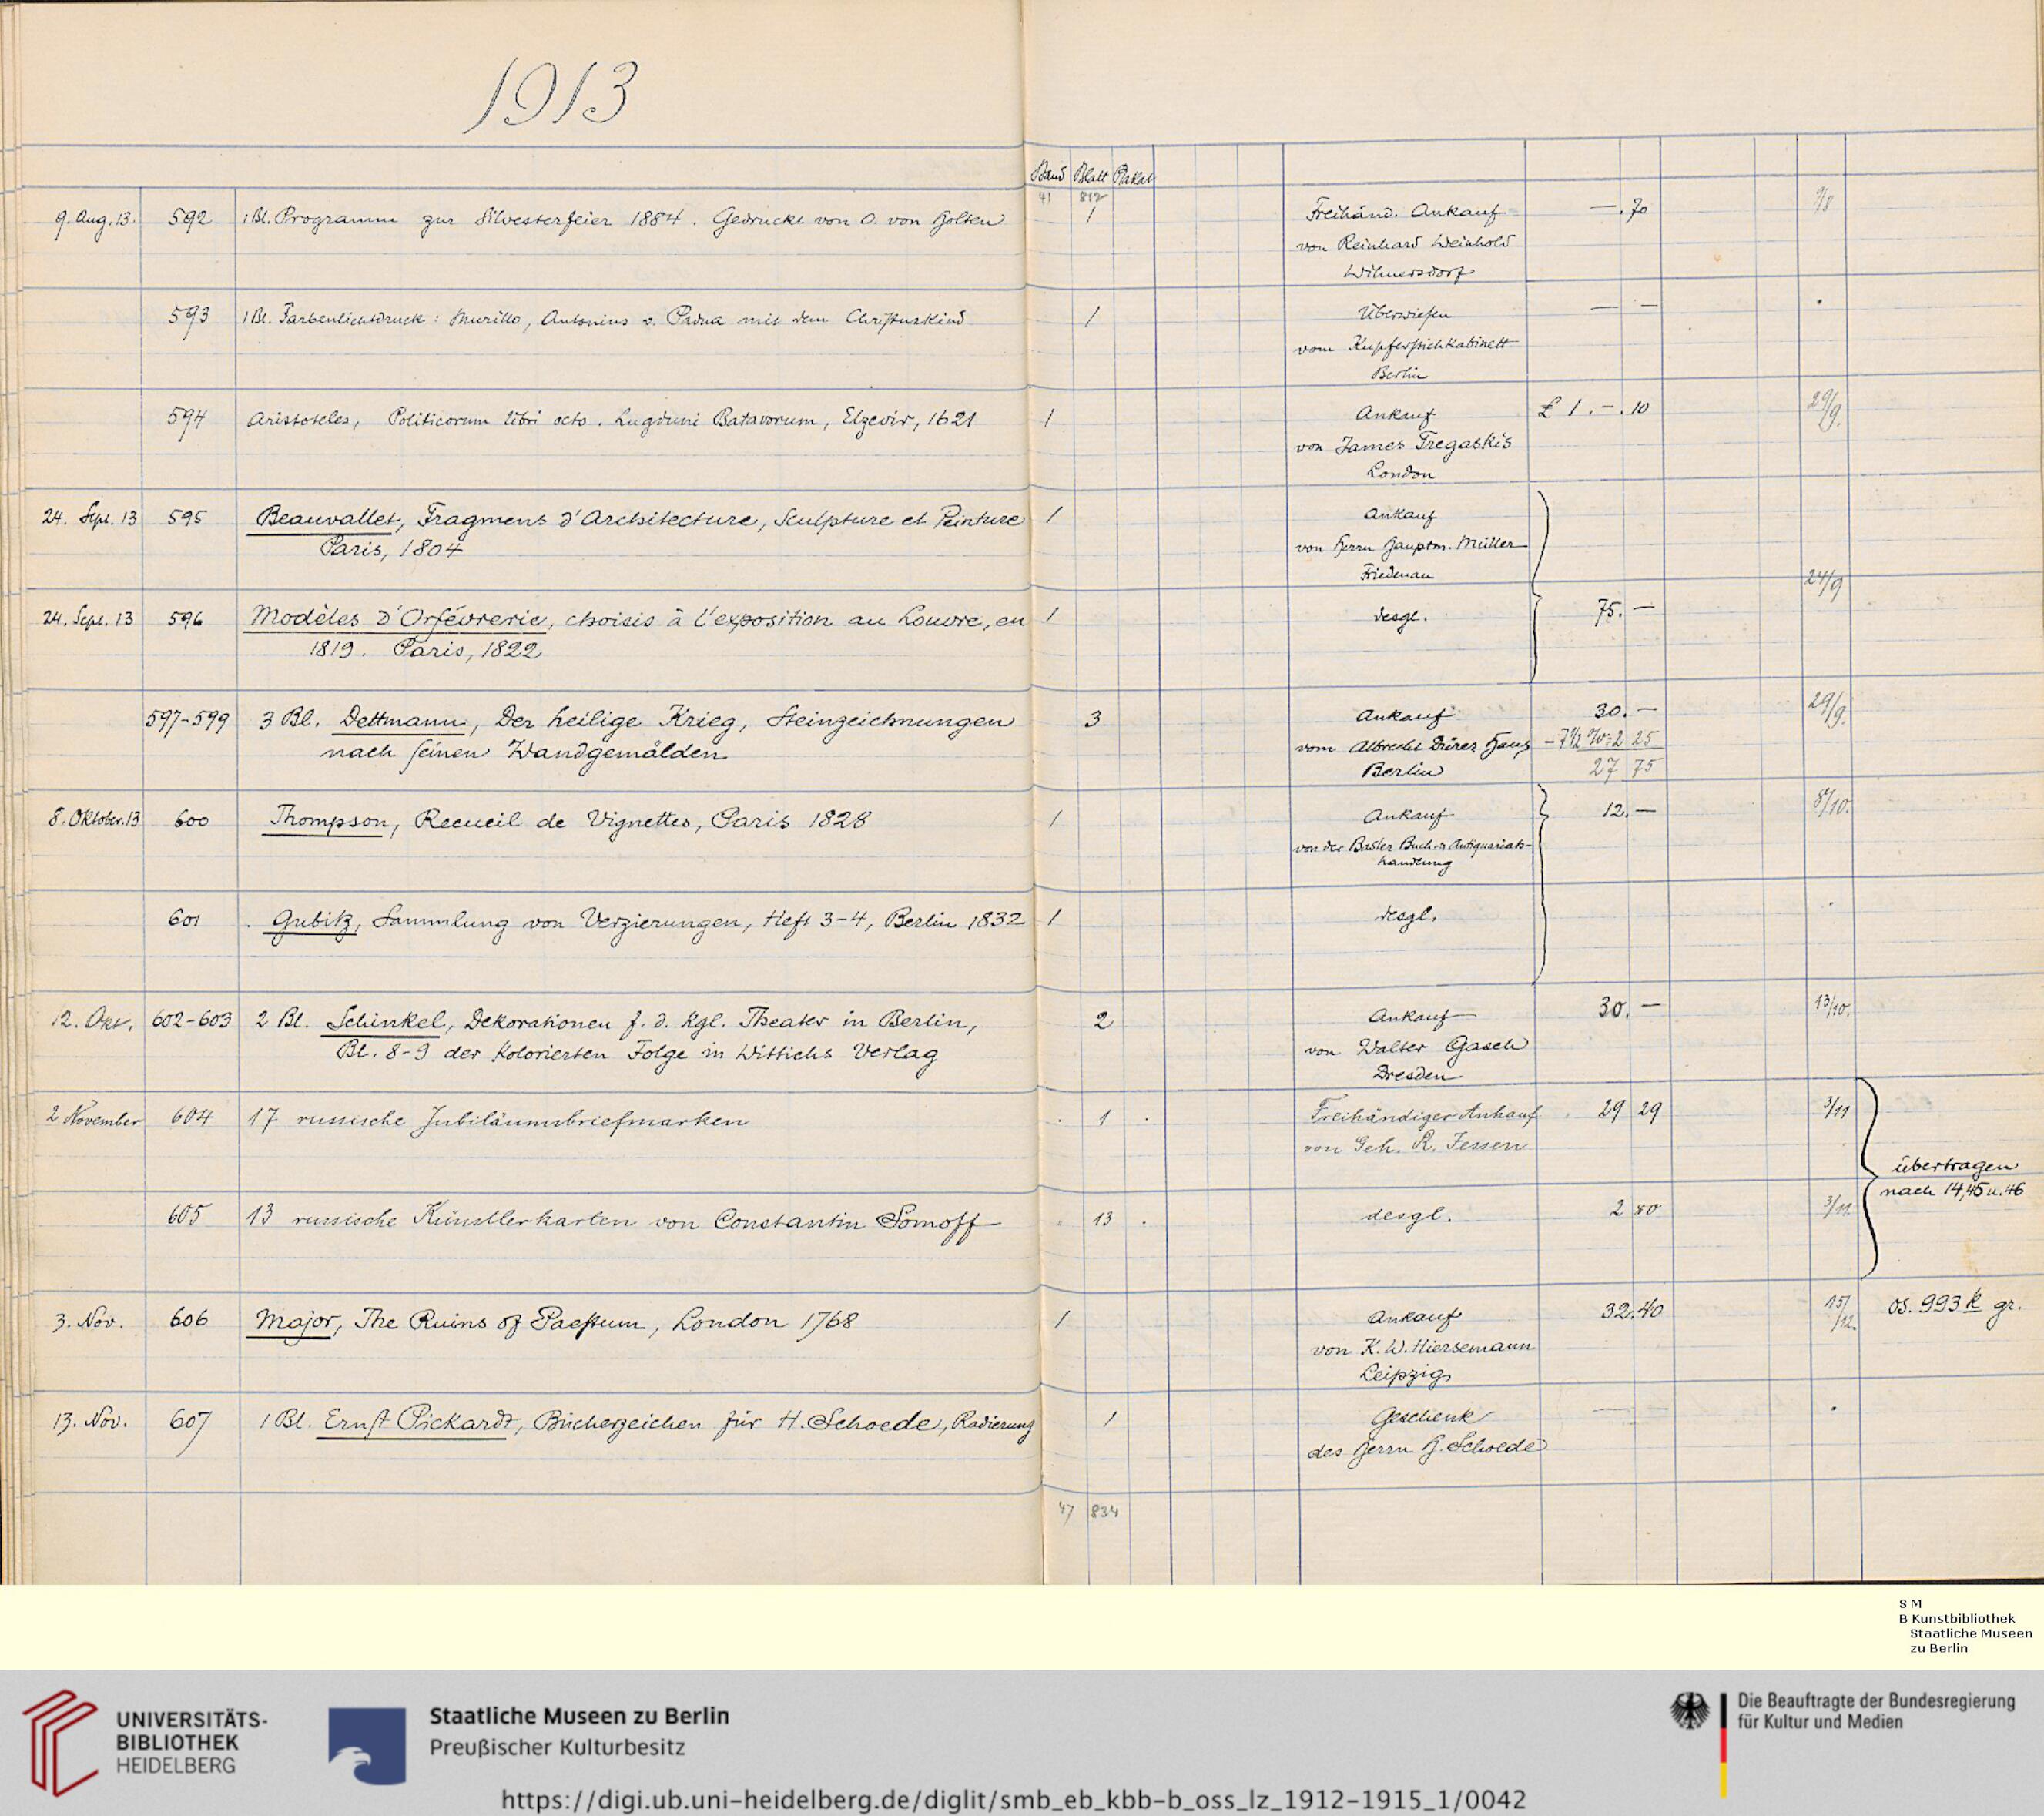 1913
Band Blatt Plakat
41 812
9. Aug. 13. 592 1 Bl. Programm zur Silvesterfeier 1884. Gedruckt von O. von Holten 1 Freihänd. Ankauf —.70 9/8
von Reinhard Weinhold
Wilmersdorf
593 1 Bl. Farbenlichtdruck: Murillo, Antonius v. Padua mit dem Christuskind 1 Überwiesen — —
vom Kupferstichkabinett
Berlin
594 Aristoteles, Politicorum libri octo. Lugduni Batavorum, Elzevir, 1621 1 Ankauf £ 1.—.10 29/9.
von James Tregaskis
London
24. Sept. 13 595 Beauvallet, Fragmens d'Architecture, Sculpture et Peinture 1 Ankauf
Paris, 1804 von Herrn Hauptm. Müller
Friedenau 24/9
24. Sept. 13 596 Modèles d'Orfévrerie, choisis à l'exposition au Louvre, en 1 desgl. 75.—
1819. Paris, 1822
597-599 3 Bl. Dettmann, Der heilige Krieg, Steinzeichnungen 3 Ankauf 30.— 29/9.
nach seinen Wandgemälden vom Albrecht Dürer Haus – 7½ % = 2 25
Berlin 27 75
8. Oktober. 13 600 Thompson, Recueil de Vignettes, Paris 1828 1 Ankauf 12.— 8/10.
von der Basler Buch- u Antiquariats-
handlung
601 Gubitz, Sammlung von Verzierungen, Heft 3-4, Berlin 1832 1 desgl.
12. Okt. 602-603 2 Bl. Schinkel, Dekorationen f. d. Kgl. Theater in Berlin, 2 Ankauf 30.— 13/10.
Bl. 8-9 der kolorierten Folge in Wittichs Verlag von Walter Gasch
Dresden
2 November 604 17 russische Jubiläumsbriefmarken 1 Freihändiger Ankauf 29 29 3/11
von Geh. R. Jessen
übertragen
nach 14,45 u. 46
605 13 russische Künstlerkarten von Constantin Somoff 13 desgl. 2 80 3/11.
3. Nov. 606 Major, The Ruins of Paestum, London 1768 1 Ankauf 32.40 15/12. OS. 993 k gr.
von K. W. Hiersemann
Leipzig
13. Nov. 607 1 Bl. Ernst Pickardt, Bücherzeichen für H. Schoede, Radierung 1 Geschenk — —
des Herrn H. Schoede
47 834
S M
B Kunstbibliothek
Staatliche Museen
zu Berlin
UNIVERSITÄTS-
BIBLIOTHEK
HEIDELBERG
Staatliche Museen zu Berlin
Preußischer Kulturbesitz
Die Beauftragte der Bundesregierung
für Kultur und Medien
https://digi.ub.uni-heidelberg.de/diglit/smb_eb_kbb-b_oss_lz_1912-1915_1/0042